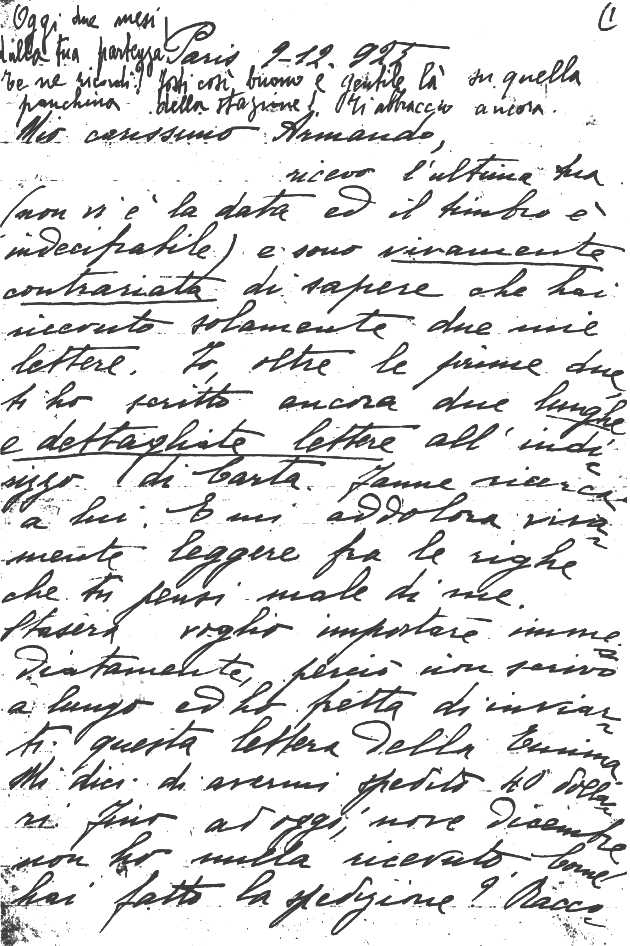 (1
Oggi due mesi
dalla tua partenza
te ne ricordi? Fosti così buono e gentile là su quella
panchina della stazione! Ti abbraccio ancora.
Paris 9-12-925
Mio carissimo Armando,
ricevo l'ultima tua
(non vi è la data ed il timbro è
indecifrabile) e sono vivamente
contrariata di sapere che hai
ricevuto solamente due mie
lettere. Io, oltre le prime due,
ti ho scritto ancora due lunghe
e dettagliate lettere all'indi-
rizzo di Carta. Fanne ricerca
a lui. E mi addolora viva-
mente leggere fra le righe
che tu pensi male di me.
Stasera voglio importare imme-
diatamente, perciò non scrivo
a lungo ed ho fretta di inviar-
ti questa lettera della Emma.
Mi dici di avermi spedito 40 dolla-
ri. Fino ad oggi, nove disembre
non ho nulla ricevuto. Come
hai fatto la spedizione? Racco-